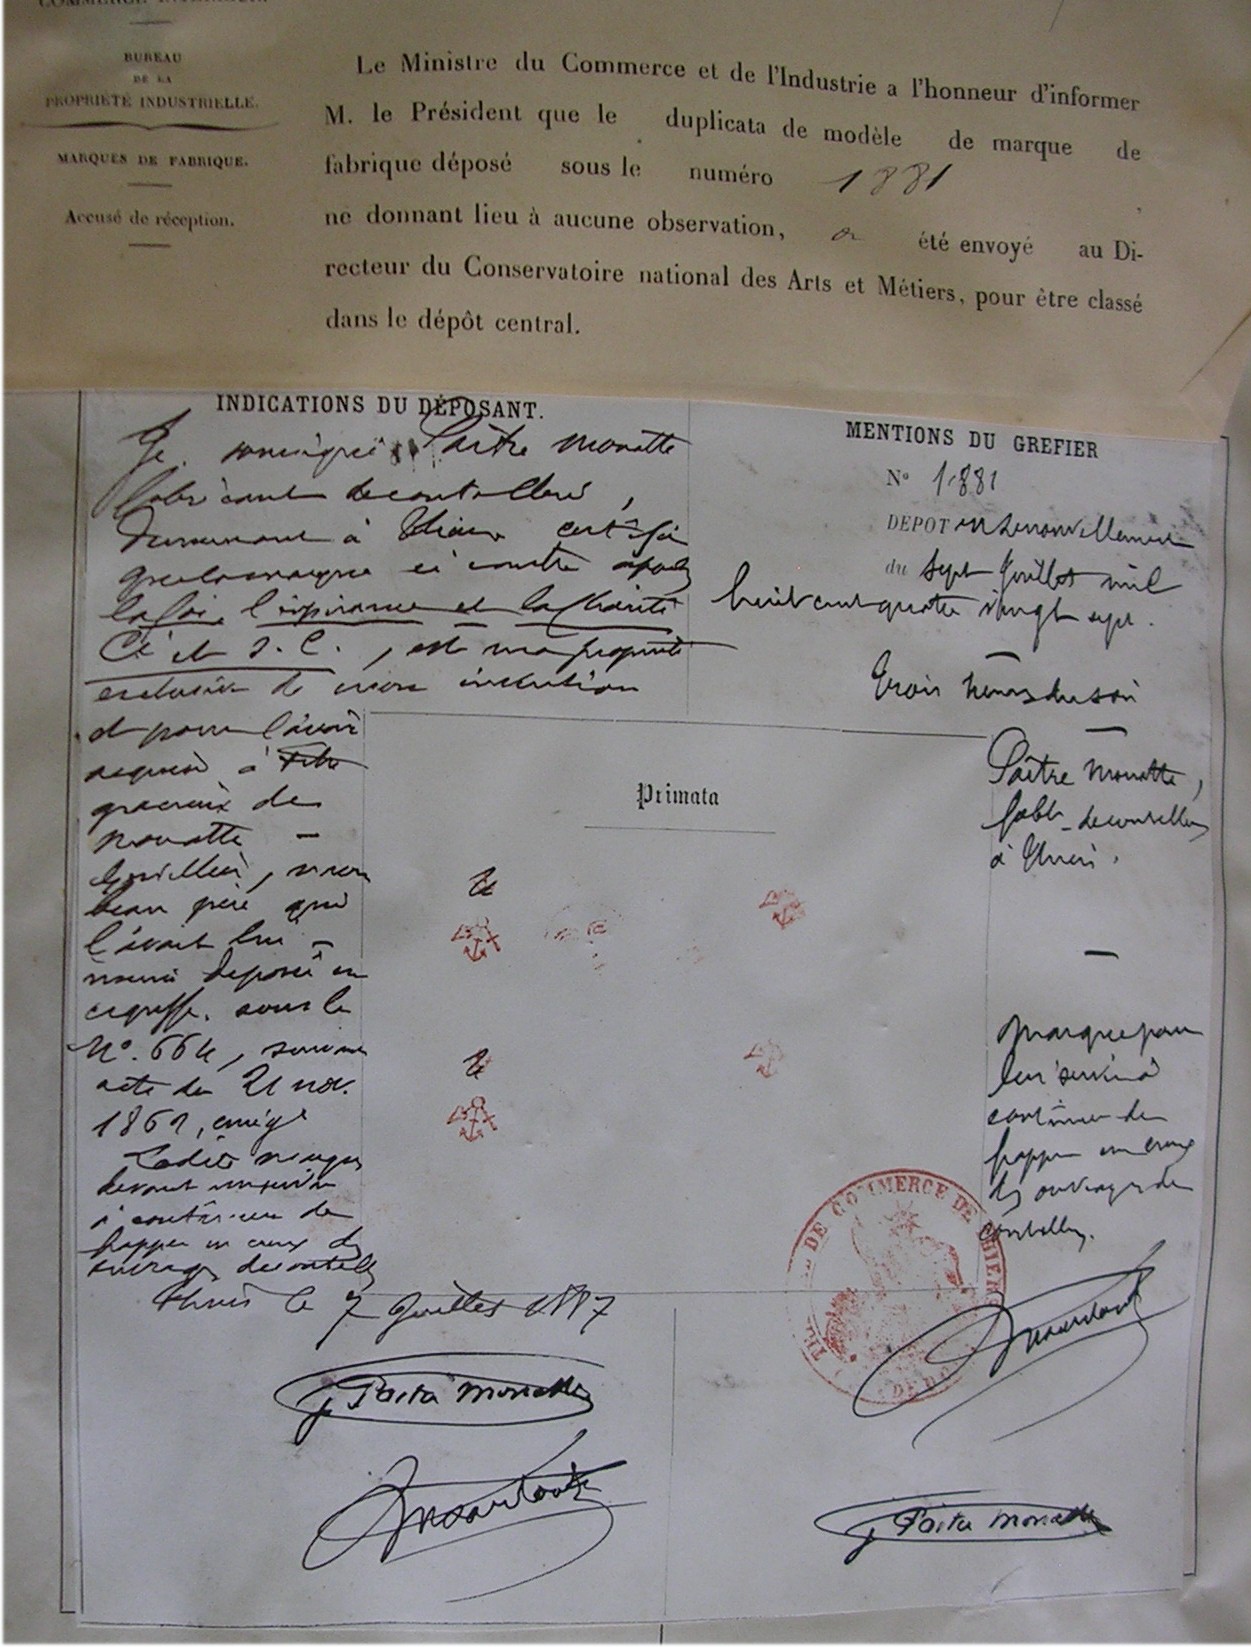 COMMERCE INTÉRIEUR.
BUREAU
DE LA
PROPRIÉTÉ INDUSTRIELLE.
MARQUES DE FABRIQUE.
Accusé de réception.
Le Ministre du Commerce et de l'Industrie a l'honneur d'informer
M. le Président que le duplicata de modèle de marque de
fabrique déposé sous le numéro 1881
ne donnant lieu à aucune observation, a été envoyé au Di-
recteur du Conservatoire national des Arts et Métiers, pour être classé
dans le dépôt central.
INDICATIONS DU DÉPOSANT.
Je soussigné Monatte
fabricant de coutellerie,
demeurant à Thiers certifie
que la marque ci contre
la foi, l'espérance et la charité
et J. C., est ma propriété
exclusive de mon invention
et pour l'avoir
acquise à
de
Monatte —
mon
beau père qui
l'avait lui —
même déposée au
greffe, sous le
N° 664, suivant
acte du 21 nov.
1861,
Ladite marque
devant me servir
à continuer de
frapper en creux des
ouvrages de coutellerie
Thiers le 7 Juillet 1887
Monatte
MENTIONS DU GREFIER
N° 1881
DÉPOT en renouvellement
du sept Juillet mil
huit cent quatre vingt sept.
Trois heures du soir
Monatte,
fabt de coutellerie
à Thiers.
Marque pour
leur servir à
continuer de
frapper en creux
des ouvrages de
coutellerie.
Primata
DE COMMERCE DE THIERS
Monatte